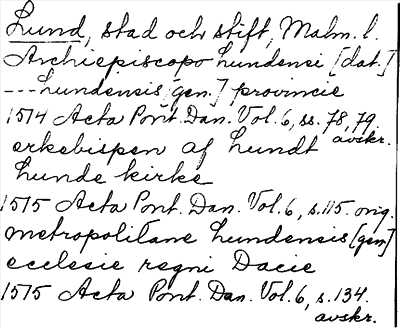 Lund, stad och stift, Malm. l.
Archiepiscopo Lundensi [dat.]
--- Lundensis [gen.] provincie
1514 Acta Pont. Dan. Vol. 6, ss. 78, 79. avskr.
erkebispen af Lundt
Lunde kirke
1515 Acta Pont. Dan. Vol. 6, s. 115. orig.
metropolitane Lundensis [gen]
ecclesie regni Dacie
1515 Acta Pont. Dan. Vol. 6, s. 134.
avskr.